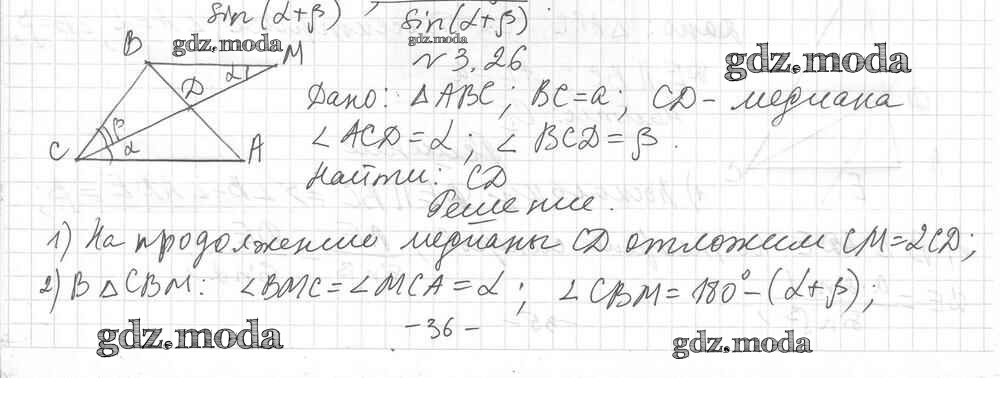 sin(α+β) ; sin(α+β) .
gdz.moda
gdz.moda
gdz.moda
B M
D α
β
α
C A
N 3.26
Дано: △ABC; BC=a; CD - медиана
∠ACD=α; ∠BCD=β.
Найти: CD
Решение.
1) На продолжению медианы CD отложим CM=2CD;
2) В △CBM: ∠BMC=∠MCA=α; ∠CBM=180°-(α+β);
-36-
gdz.moda
gdz.moda